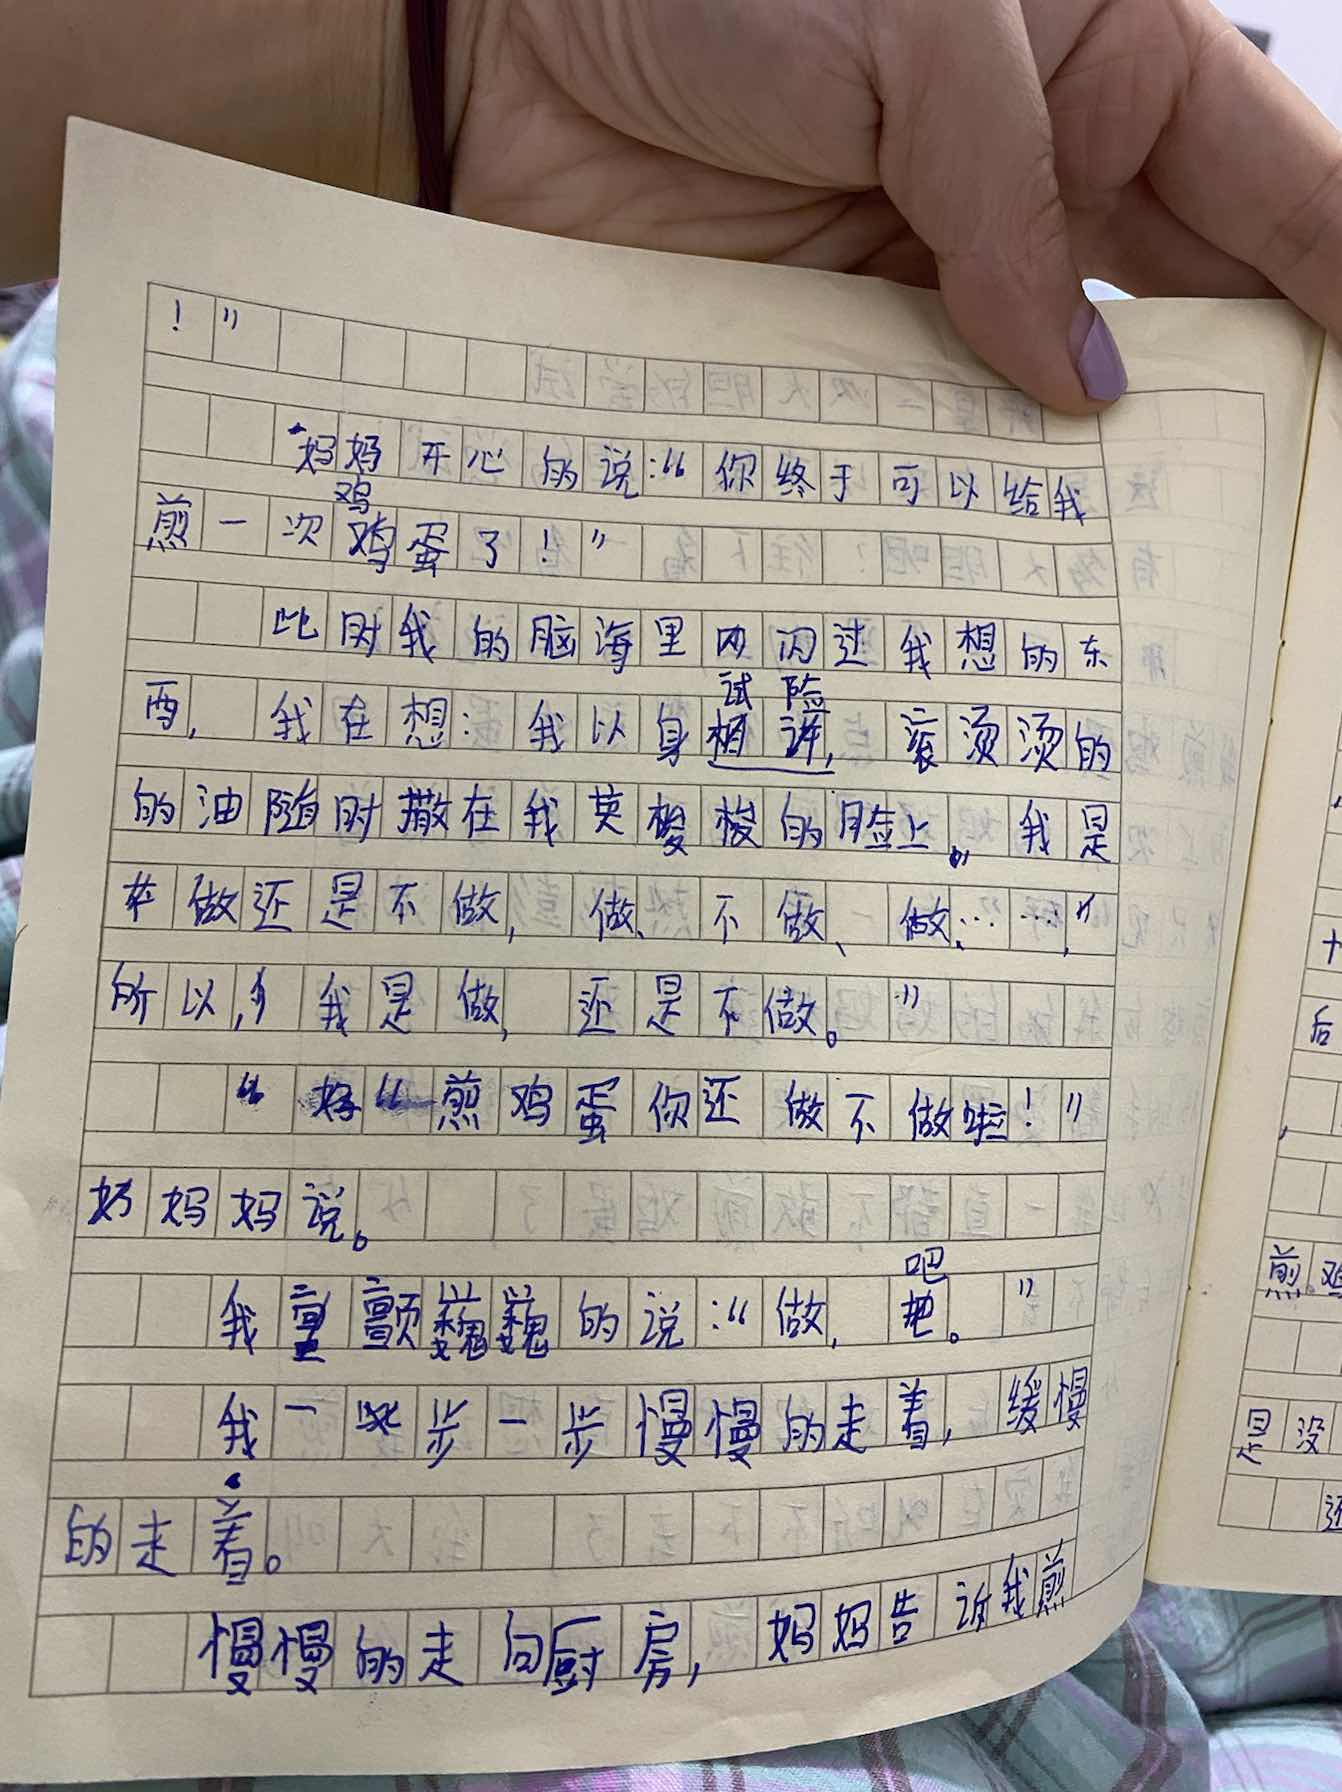 ！”
妈妈开心的说：“你终于可以给我
鸡
煎一次鸡蛋了！”
此时我的脑海里闪过我想的东
西，我在想：我以身
试险
相许，滚烫烫的
的油随时撒在我英梭梭的脸上，我是
做还是不做，做、不做、做……，”
所以，我是做，还是不做。”
“煎鸡蛋你还做不做啦！”
妈妈说。
吧
我颤巍巍的说：“做，把。”
我一步一步慢慢的走着，缓慢
的走着。
慢慢的走向厨房，妈妈告诉我煎
后
煎鸡
是没
还